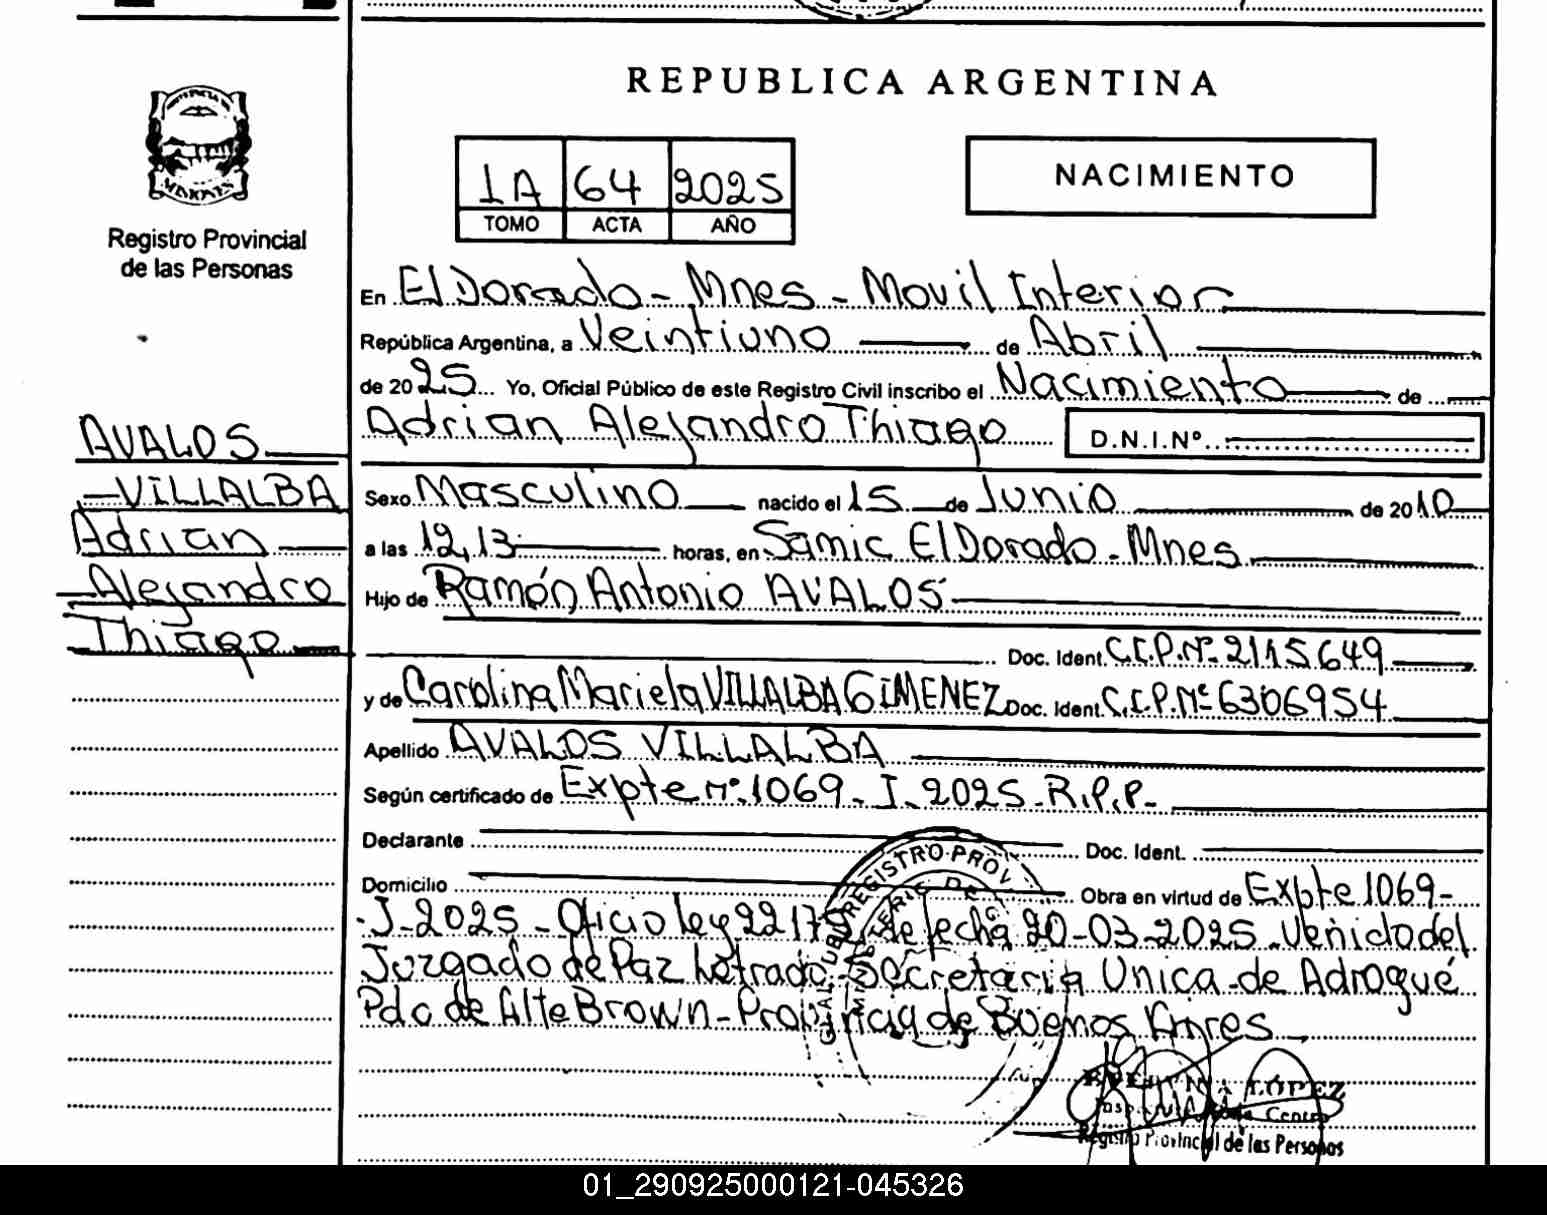 REPUBLICA ARGENTINA
PROVINCIA DE MISIONES
Registro Provincial
de las Personas
1A 64 2025
TOMO ACTA AÑO
NACIMIENTO
En El Dorado - Mnes - Movil Interior
República Argentina, a Veintiuno de Abril
de 2025 Yo, Oficial Público de este Registro Civil inscribo el Nacimiento de
Adrian Alejandro Thiago D.N.I.Nº
AVALOS
VILLALBA
Adrian
Alejandro
Thiago
Sexo Masculino nacido el 15 de Junio de 2010
a las 12,13 horas, en Samic El Dorado - Mnes
Hijo de Ramón Antonio AVALOS
Doc. Ident. C.I.P.Nº 2115649
y de Carolina Mariela VILLALBA GIMENEZ Doc. Ident. C.I.P.Nº 6306954
Apellido AVALOS VILLALBA
Según certificado de Expte nº 1069 - I - 2025 - R.P.P-
Declarante Doc. Ident.
Domicilio Obra en virtud de Expte 1069-
-I-2025 - Oficio ley 22172 de fecha 20-03-2025 - Venido del
Juzgado de Paz Letrado - Secretaria Unica - de Adrogué
Pdo de Alte Brown - Provincia de Buenos Aires
REGISTRO PROV
MINISTERIO DE
LÓPEZ
Zona Centro
Registro Provincial de las Personas
01_290925000121-045326